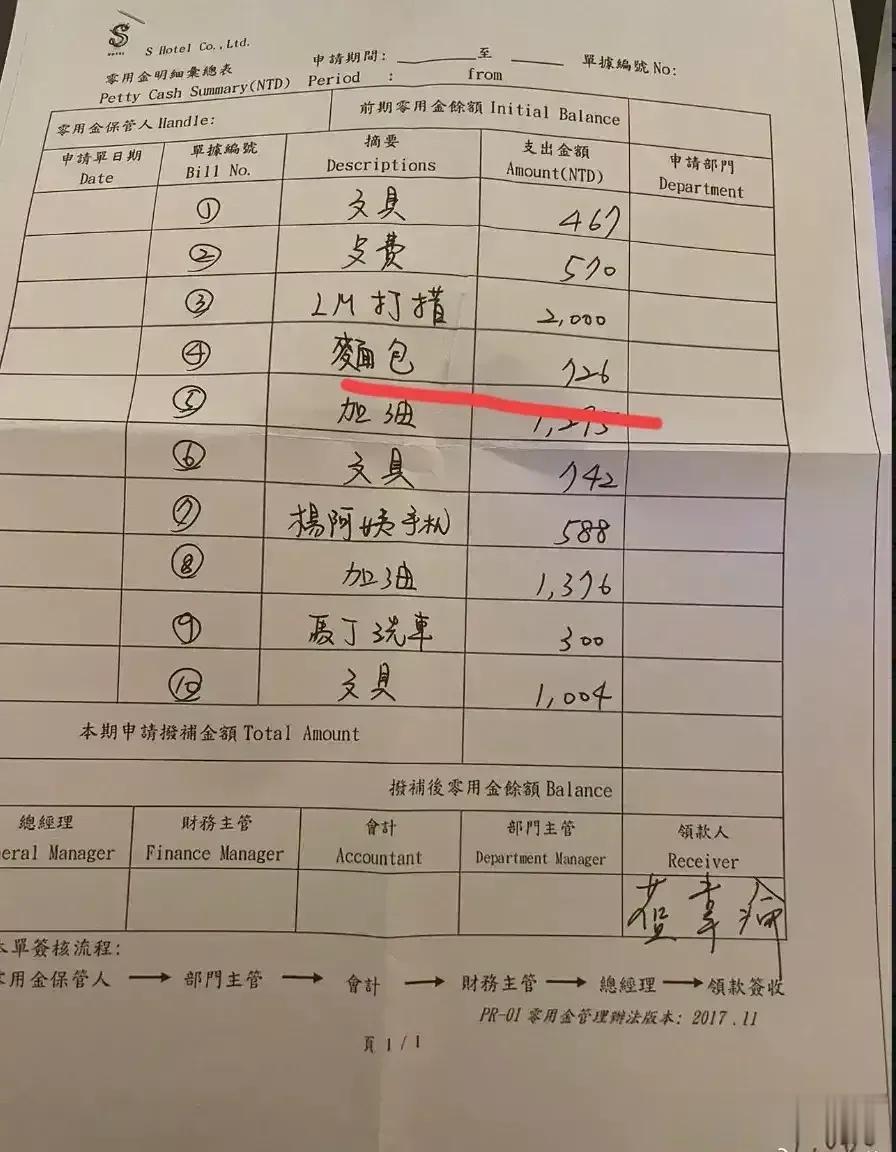 S
S Hotel Co.,Ltd.
零用金明細彙總表
Petty Cash Summary(NTD)
申請期間: 至
Period : from
單據編號No:
零用金保管人 Handle:
前期零用金餘額 Initial Balance
申請單日期 Date
單據編號 Bill No.
摘要 Descriptions
支出金額 Amount(NTD)
申請部門 Department
① 文具 467
② 皮費 570
③ LM 打掃 2,000
④ 麵包 726
⑤ 加油 1,275
⑥ 文具 742
⑦ 楊阿姨手机 588
⑧ 加油 1,376
⑨ 馬丁洗車 300
⑩ 文具 1,004
本期申請撥補金額 Total Amount
撥補後零用金餘額 Balance
總經理 eral Manager
財務主管 Finance Manager
會計 Accountant
部門主管 Department Manager
領款人 Receiver
本單簽核流程:
零用金保管人 → 部門主管 → 會計 → 財務主管 → 總經理 → 領款簽收
PR-01 零用金管理辦法版本: 2017.11
頁 1/1